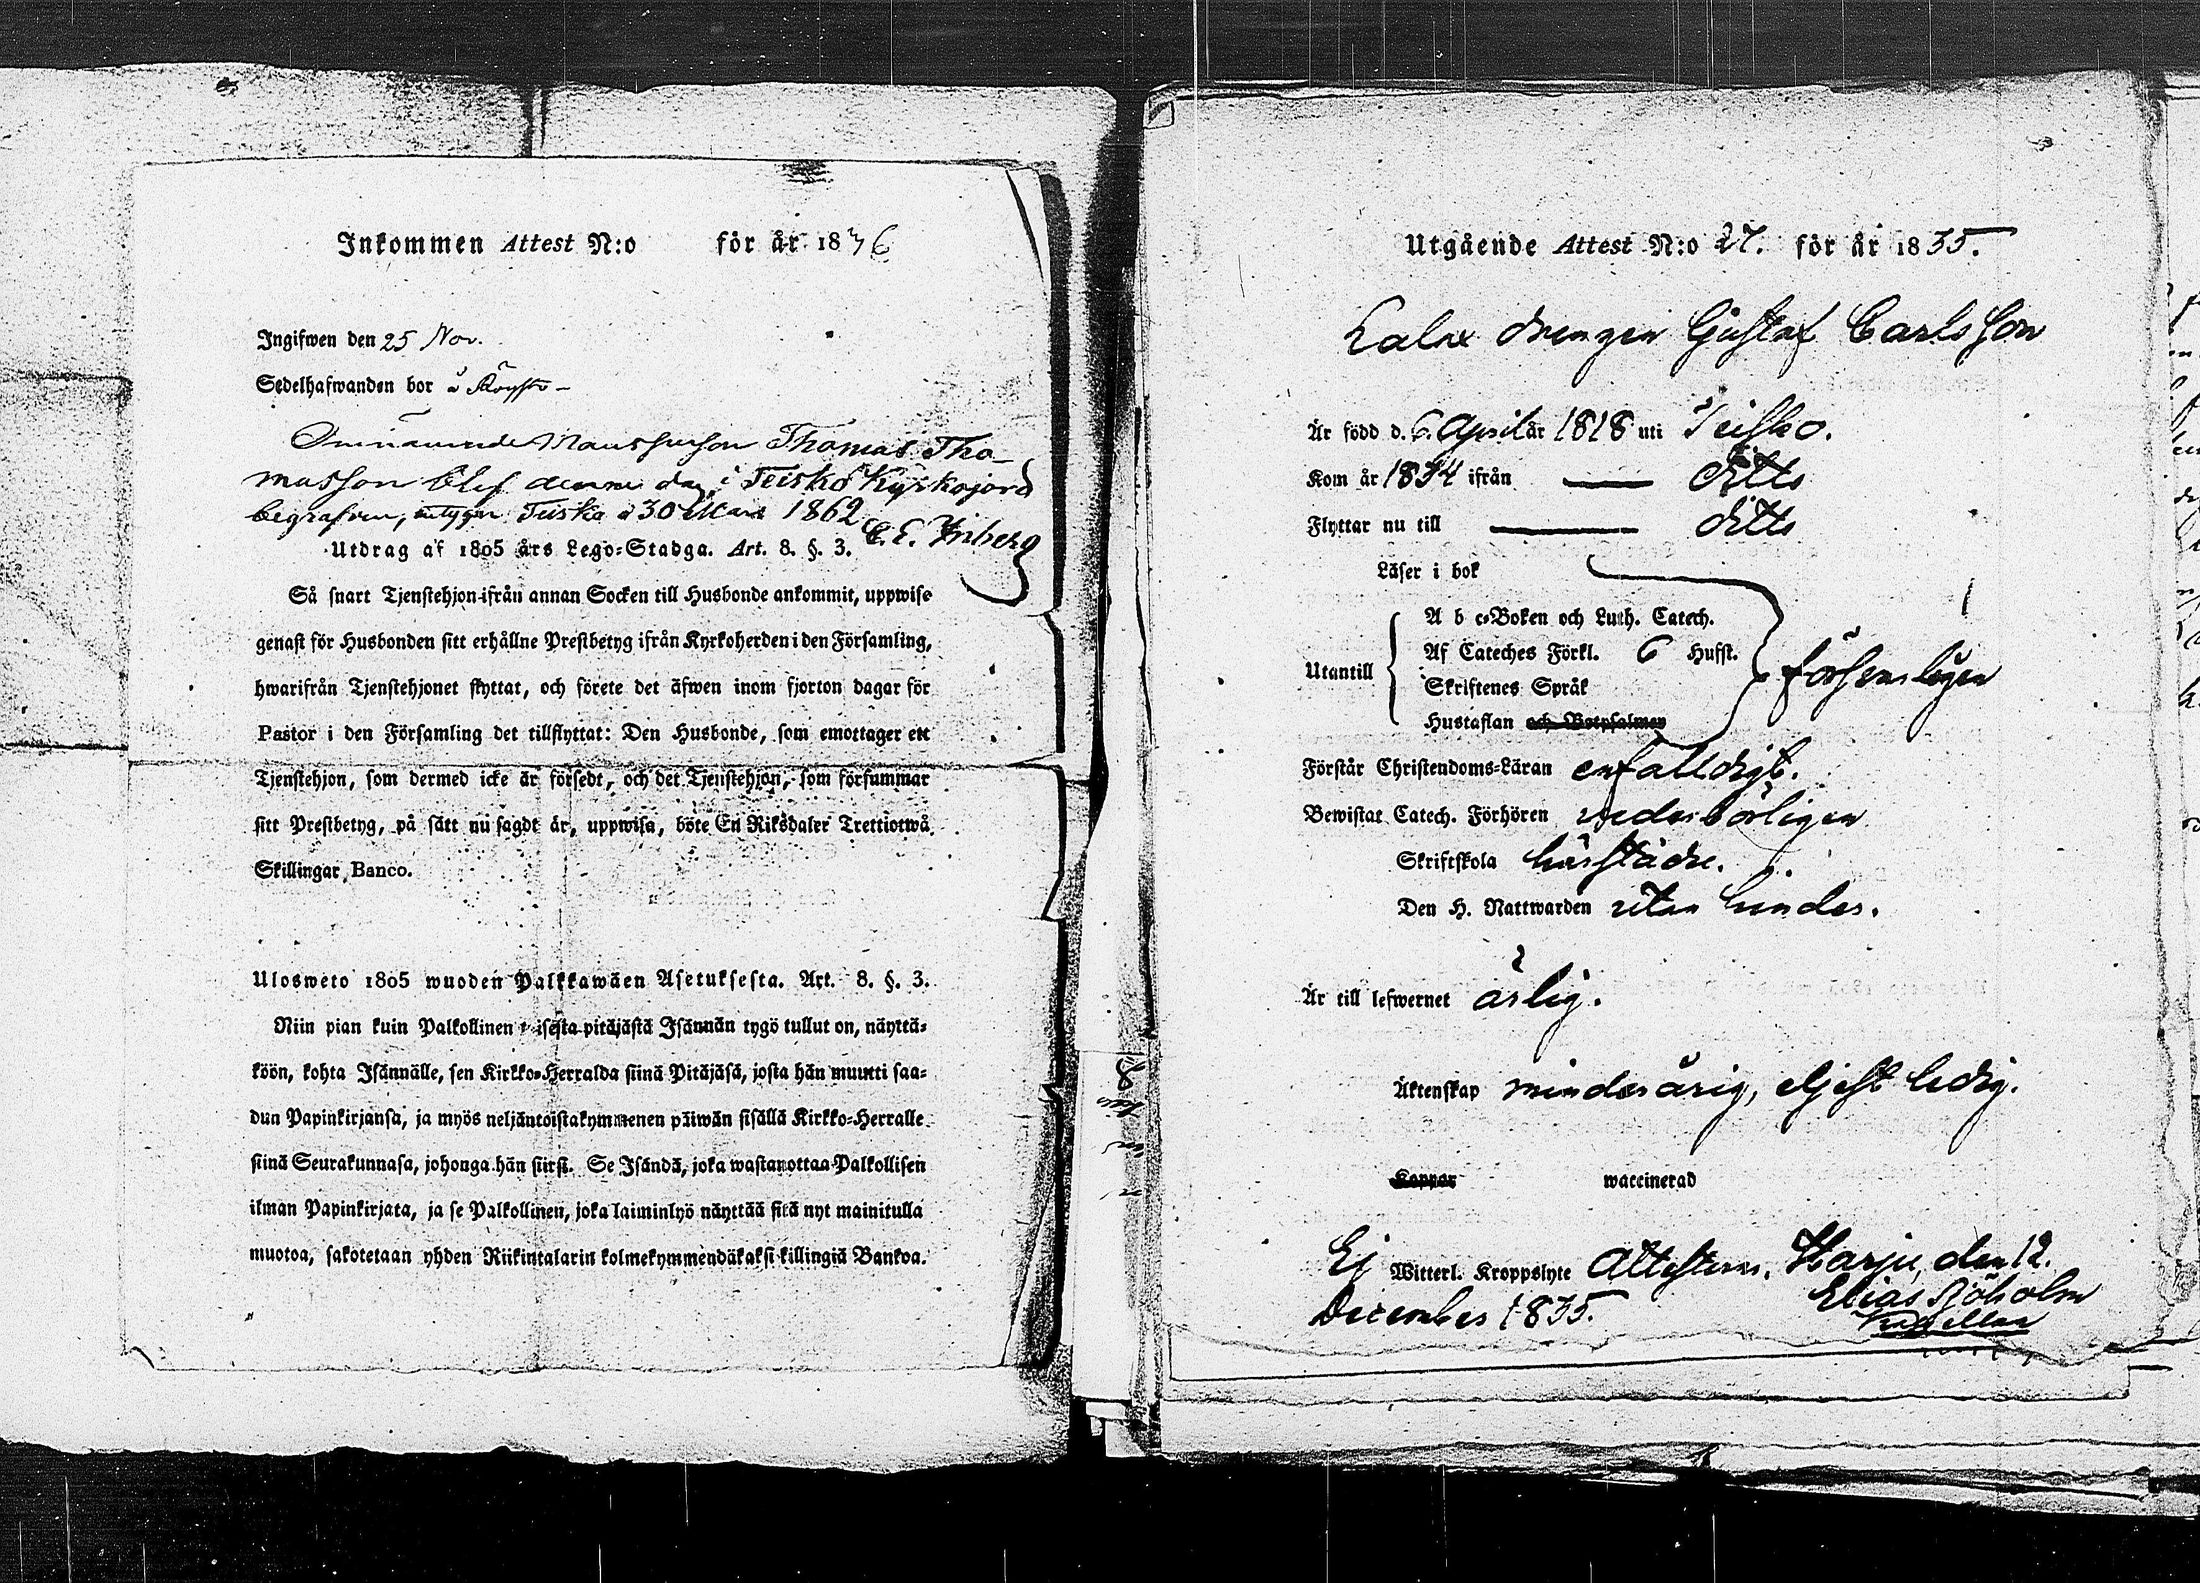 Inkommen Attest N:o för år 1836
Ingifwen den 25 Nov.
Sedelhafwanden bor å
Omnämnde Thomas Tho-
masson blef denne dag i Teisko Kyrkojord
begrafven, intygar Teisko d 30 Mars 1862
C. E.
Utdrag af 1805 års Lego-Stadga. Art. 8. §. 3.
Så snart Tjenstehjon ifrån annan Socken till Husbonde ankommit, uppwise
genast för Husbonden sitt erhållne Prestbetyg ifrån Kyrkoherden i den Församling,
hwarifrån Tjenstehjonet flyttat, och förete det äfwen inom fjorton dagar för
Pastor i den Församling det tillflyttat: Den Husbonde, som emottager ett
Tjenstehjon, som dermed icke är försedt, och det Tjenstehjon, som försummar
sitt Prestbetyg, på sätt nu sagdt är, uppwisa, böte En Riksdaler Trettiotwå
Skillingar Banco.
Ulosweto 1805 wuoden Palkkawäen Asetuksesta. Art. 8. §. 3.
Niin pian kuin Palkollinen toisesta pitäjästä Isännän tygö tullut on, näyttä-
köön, kohta Isännälle, sen Kirkko-Herralda siinä Pitäjäsä, josta hän muutti saa-
dun Papinkirjansa, ja myös neljäntoistakymmenen päiwän sisällä Kirkko-Herralle
siinä Seurakunnasa, johonga hän siirsi. Se Isändä, joka wastanottaa Palkollisen
ilman Papinkirjata, ja se Palkollinen, joka laiminlyö näyttää sitä nyt mainitulla
muotoa, sakotetaan yhden Riikintalarin kolmekymmendäkaksi killingiä Bankoa.
Utgående Attest N:o 27. för år 1835.
drengen Gustaf Carlsson
Är född d. 6. April år 1818 uti Teisko.
Kom år 1834 ifrån — ditto
Flyttar nu till — ditto
Läser i bok
A b c-Boken och Luth. Catech.
Utantill Af Cateches Förkl. 6 Hufst. försvarligen
Skriftenes Språk
Hustaflan och Botpsalmer
Förstår Christendoms-Läran enfalldigt.
Bewistat Catech. Förhören vederbörligen
Skriftskola härstädes.
Den H. Nattwarden utan hinder.
Är till lefwernet ärlig.
Äktenskap minderårig, eljest ledig.
Koppor waccinerad
Ej Witterl. Kroppslyte Attesterar, Harju, den 12.
December 1835. Elias Sjöholm
Kapellan